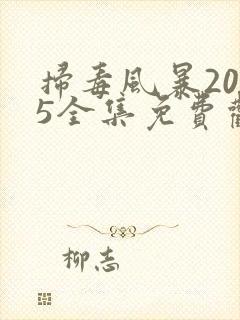 掃毒風暴20
5全集免費
柳志